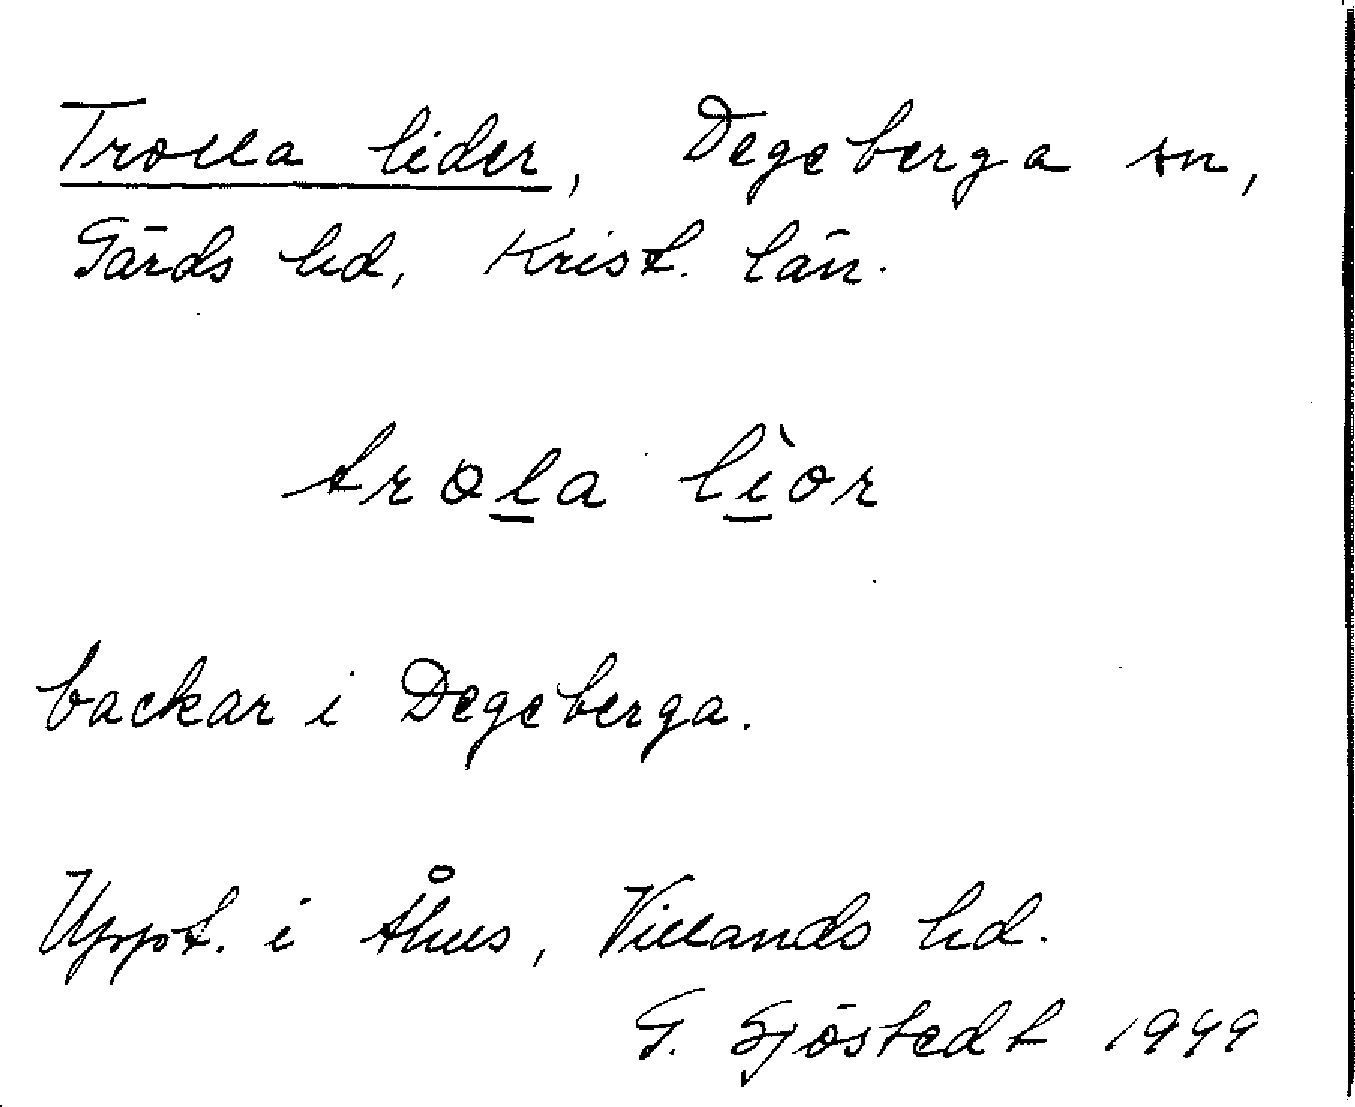 Trolla lider, Degeberga sn,
Gärds hd, Krist. län.
trola lìor
backar i Degeberga.
Uppt. i Åhus, Villands hd.
G. Sjöstedt 1949